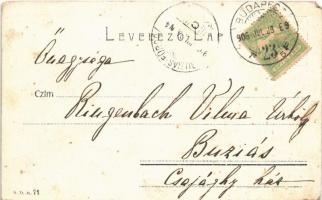 BUDAPEST
906 JUL 23
LEVELEZŐ-LAP
Őnagysága
Czím
Ringenbach Vilma Úrhölgy
Buziás
Csojághy ház
71